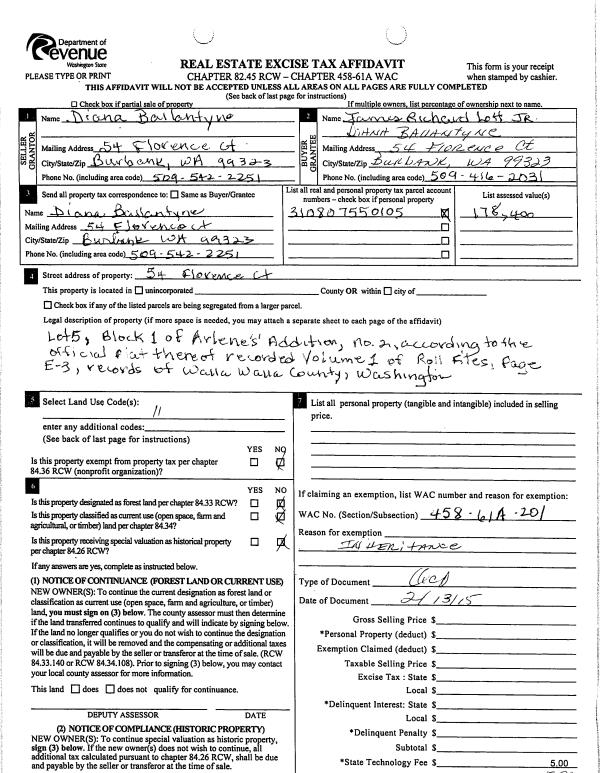 Department of
Revenue
Washington State
PLEASE TYPE OR PRINT
REAL ESTATE EXCISE TAX AFFIDAVIT
CHAPTER 82.45 RCW – CHAPTER 458-61A WAC
This form is your receipt
when stamped by cashier.
THIS AFFIDAVIT WILL NOT BE ACCEPTED UNLESS ALL AREAS ON ALL PAGES ARE FULLY COMPLETED
(See back of last page for instructions)
Check box if partial sale of property
If multiple owners, list percentage of ownership next to name.
1
SELLER
GRANTOR
Name Diana Ballantyne
Mailing Address 54 Florence Ct
City/State/Zip Burbank, WA 99323
Phone No. (including area code) 509-542-2251
2
BUYER
GRANTEE
Name James Richard Lott JR.
DIANA BALLANTYNE
Mailing Address 54 FLORENCE Ct
City/State/Zip BURBANK, WA 99323
Phone No. (including area code) 509-416-2031
3
Send all property tax correspondence to: Same as Buyer/Grantee
Name Diana Ballantyne
Mailing Address 54 Florence ct
City/State/Zip Burbank WA 99323
Phone No. (including area code) 509-542-2251
List all real and personal property tax parcel account
numbers – check box if personal property
310807550105
List assessed value(s)
178,400
4
Street address of property: 54 Florence Ct
This property is located in unincorporated County OR within city of
Check box if any of the listed parcels are being segregated from a larger parcel.
Legal description of property (if more space is needed, you may attach a separate sheet to each page of the affidavit)
Lot 5, Block 1 of Arlene's Addition, no. 2, according to the
official plat thereof recorded Volume 1 of Roll Files, Page
E-3, records of Walla Walla County, Washington
5
Select Land Use Code(s):
11
enter any additional codes:
(See back of last page for instructions)
YES NO
Is this property exempt from property tax per chapter
84.36 RCW (nonprofit organization)?
6
YES NO
Is this property designated as forest land per chapter 84.33 RCW?
Is this property classified as current use (open space, farm and
agricultural, or timber) land per chapter 84.34?
Is this property receiving special valuation as historical property
per chapter 84.26 RCW?
If any answers are yes, complete as instructed below.
(1) NOTICE OF CONTINUANCE (FOREST LAND OR CURRENT USE)
NEW OWNER(S): To continue the current designation as forest land or
classification as current use (open space, farm and agriculture, or timber)
land, you must sign on (3) below. The county assessor must then determine
if the land transferred continues to qualify and will indicate by signing below.
If the land no longer qualifies or you do not wish to continue the designation
or classification, it will be removed and the compensating or additional taxes
will be due and payable by the seller or transferor at the time of sale. (RCW
84.33.140 or RCW 84.34.108). Prior to signing (3) below, you may contact
your local county assessor for more information.
This land does does not qualify for continuance.
DEPUTY ASSESSOR DATE
(2) NOTICE OF COMPLIANCE (HISTORIC PROPERTY)
NEW OWNER(S): To continue special valuation as historic property,
sign (3) below. If the new owner(s) does not wish to continue, all
additional tax calculated pursuant to chapter 84.26 RCW, shall be
due and payable by the seller or transferor at the time of sale.
7
List all personal property (tangible and intangible) included in selling
price.
If claiming an exemption, list WAC number and reason for exemption:
WAC No. (Section/Subsection) 458-61A-201
Reason for exemption
INHERITANCE
Type of Document
Date of Document 2/13/15
Gross Selling Price $
*Personal Property (deduct) $
Exemption Claimed (deduct) $
Taxable Selling Price $
Excise Tax : State $
Local $
*Delinquent Interest: State $
Local $
*Delinquent Penalty $
Subtotal $
*State Technology Fee $ 5.00